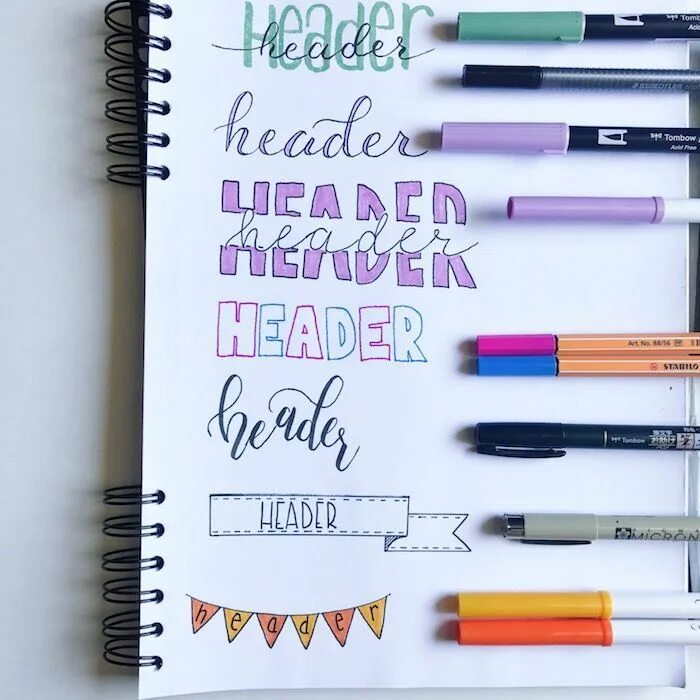 Header
header
Tomb
Acid
STAEDTLER
header
Tombow
Acid Free
HEADER
header
HEADER
Art. No. 88/56
STABILO
header
Tombow
HEADER
MICRON
header